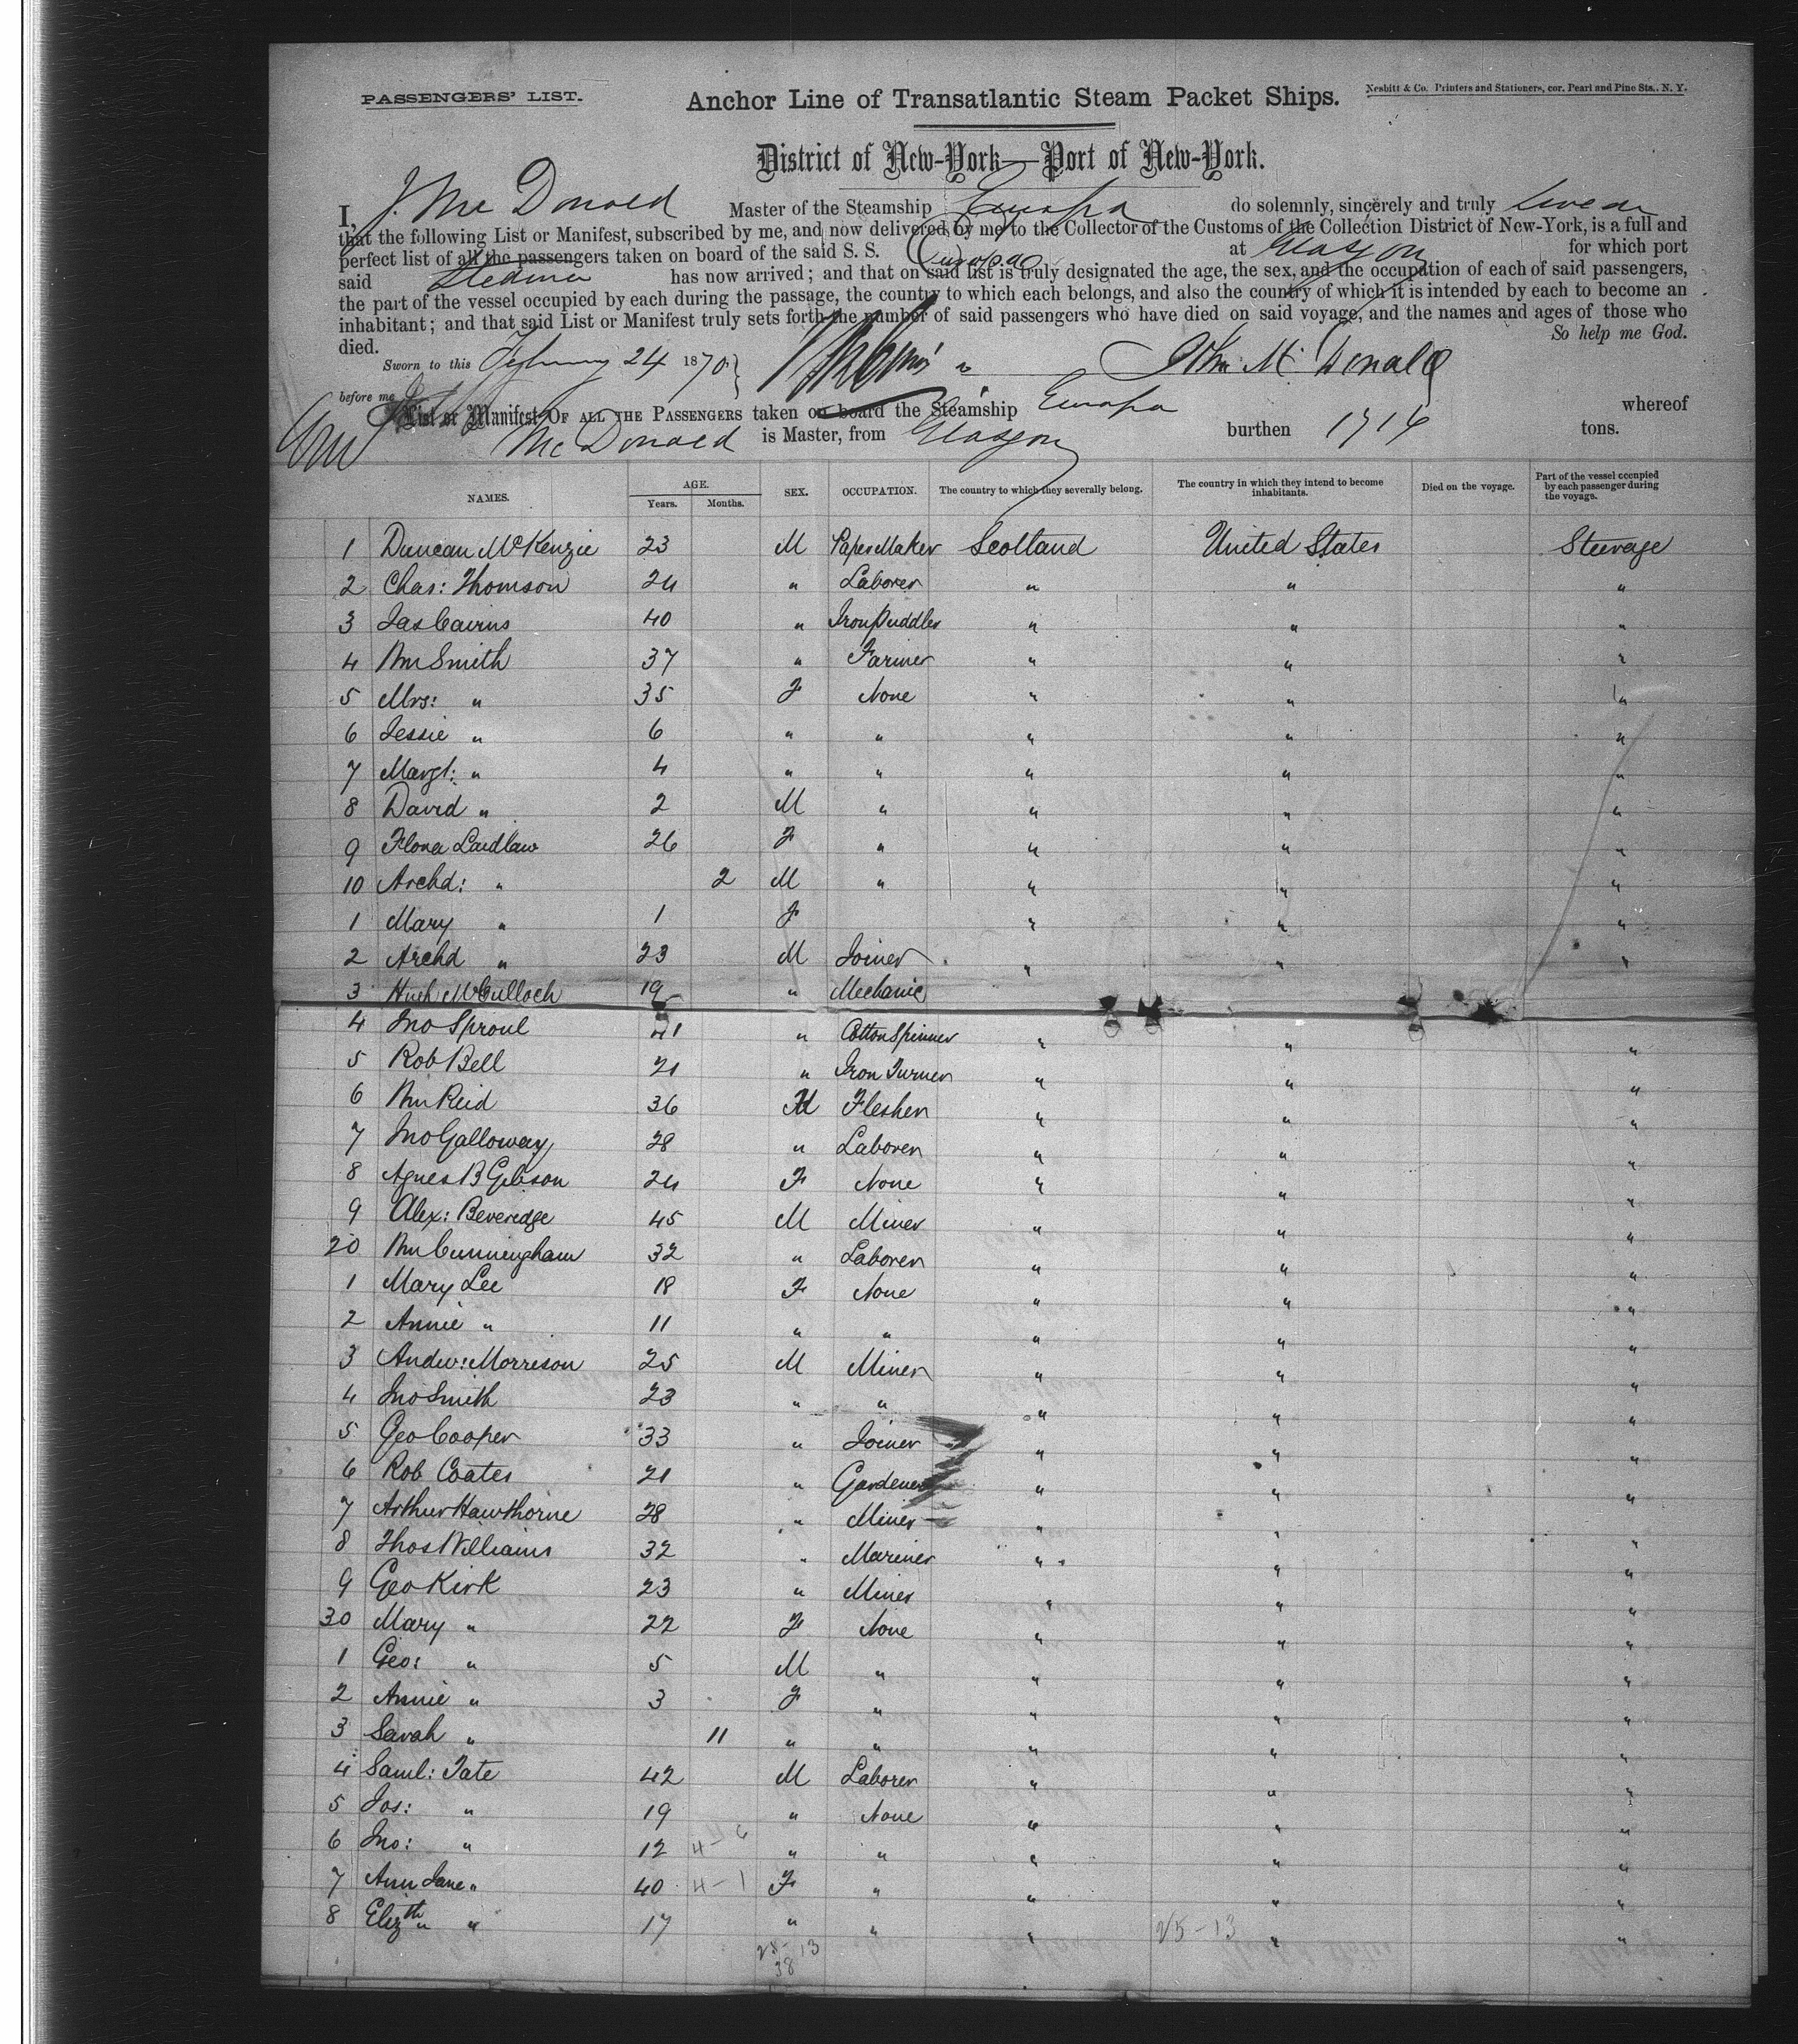 PASSENGERS' LIST.
Anchor Line of Transatlantic Steam Packet Ships.
Nesbitt & Co. Printers and Stationers, cor. Pearl and Pine Sts., N. Y.
District of New-York—Port of New-York.
I, J. McDonald Master of the Steamship Europa do solemnly, sincerely and truly swear
that the following List or Manifest, subscribed by me, and now delivered by me to the Collector of the Customs of the Collection District of New-York, is a full and
perfect list of all the passengers taken on board of the said S. S. Europa at Glasgow for which port
said Steamer has now arrived; and that on said list is truly designated the age, the sex, and the occupation of each of said passengers,
the part of the vessel occupied by each during the passage, the country to which each belongs, and also the country of which it is intended by each to become an
inhabitant; and that said List or Manifest truly sets forth the number of said passengers who have died on said voyage, and the names and ages of those who
died. So help me God.
Sworn to this February 24 1870 John McDonald
before me
List or Manifest OF ALL THE PASSENGERS taken on board the Steamship Europa whereof
McDonald is Master, from Glasgow burthen 1714 tons.
NAMES. AGE. Years. Months. SEX. OCCUPATION. The country to which they severally belong. The country in which they intend to become inhabitants. Died on the voyage. Part of the vessel occupied by each passenger during the voyage.
1 Duncan McKenzie 23 M Paper Maker Scotland United States Steerage
2 Chas: Thomson 24 " Laborer " " "
3 Jas Cairns 40 " Iron Puddler " " "
4 Wm Smith 37 " Farmer " " "
5 Mrs: " 35 F None " " "
6 Jessie " 6 " " " " "
7 Margt: " 4 " " " " "
8 David " 2 M " " " "
9 Flora Laidlaw 26 F " " " "
10 Archd: " 2 M " " " "
1 Mary " 1 F " " "
2 Archd " 23 M Joiner " " "
3 Hugh McCulloch 19 " Mechanic
4 Jno Sproul 41 " Cotton Spinner " " "
5 Rob Bell 21 " Iron Turner " " "
6 Wm Reid 36 M Flesher " " "
7 Jno Galloway 28 " Laborer " " "
8 Agnes B Gibson 24 F None " " "
9 Alex: Beveridge 45 M Miner " " "
20 Wm Cunningham 32 " Laborer " " "
1 Mary Lee 18 F None " " "
2 Annie " 11 " " " " "
3 Andw: Morrison 25 M Miner " " "
4 Jno Smith 23 " " " " "
5 Geo Cooper 33 " Joiner " " "
6 Rob Coates 21 " Gardener " " "
7 Arthur Hawthorne 28 " Miner " " "
8 Thos Williams 32 " Mariner " " "
9 Geo Kirk 23 " Miner " " "
30 Mary " 22 F None " " "
1 Geo: " 5 M " " " "
2 Annie " 3 F " " " "
3 Sarah " 11 " " " " "
4 Saml: Tate 42 M Laborer " " "
5 Jos: " 19 " None " " "
6 Jno: " 12 4-6 " " " " "
7 Ann Jane " 40 4-1 F " " " "
8 Elizth " 17 " " " " "
25-13 25-13
38